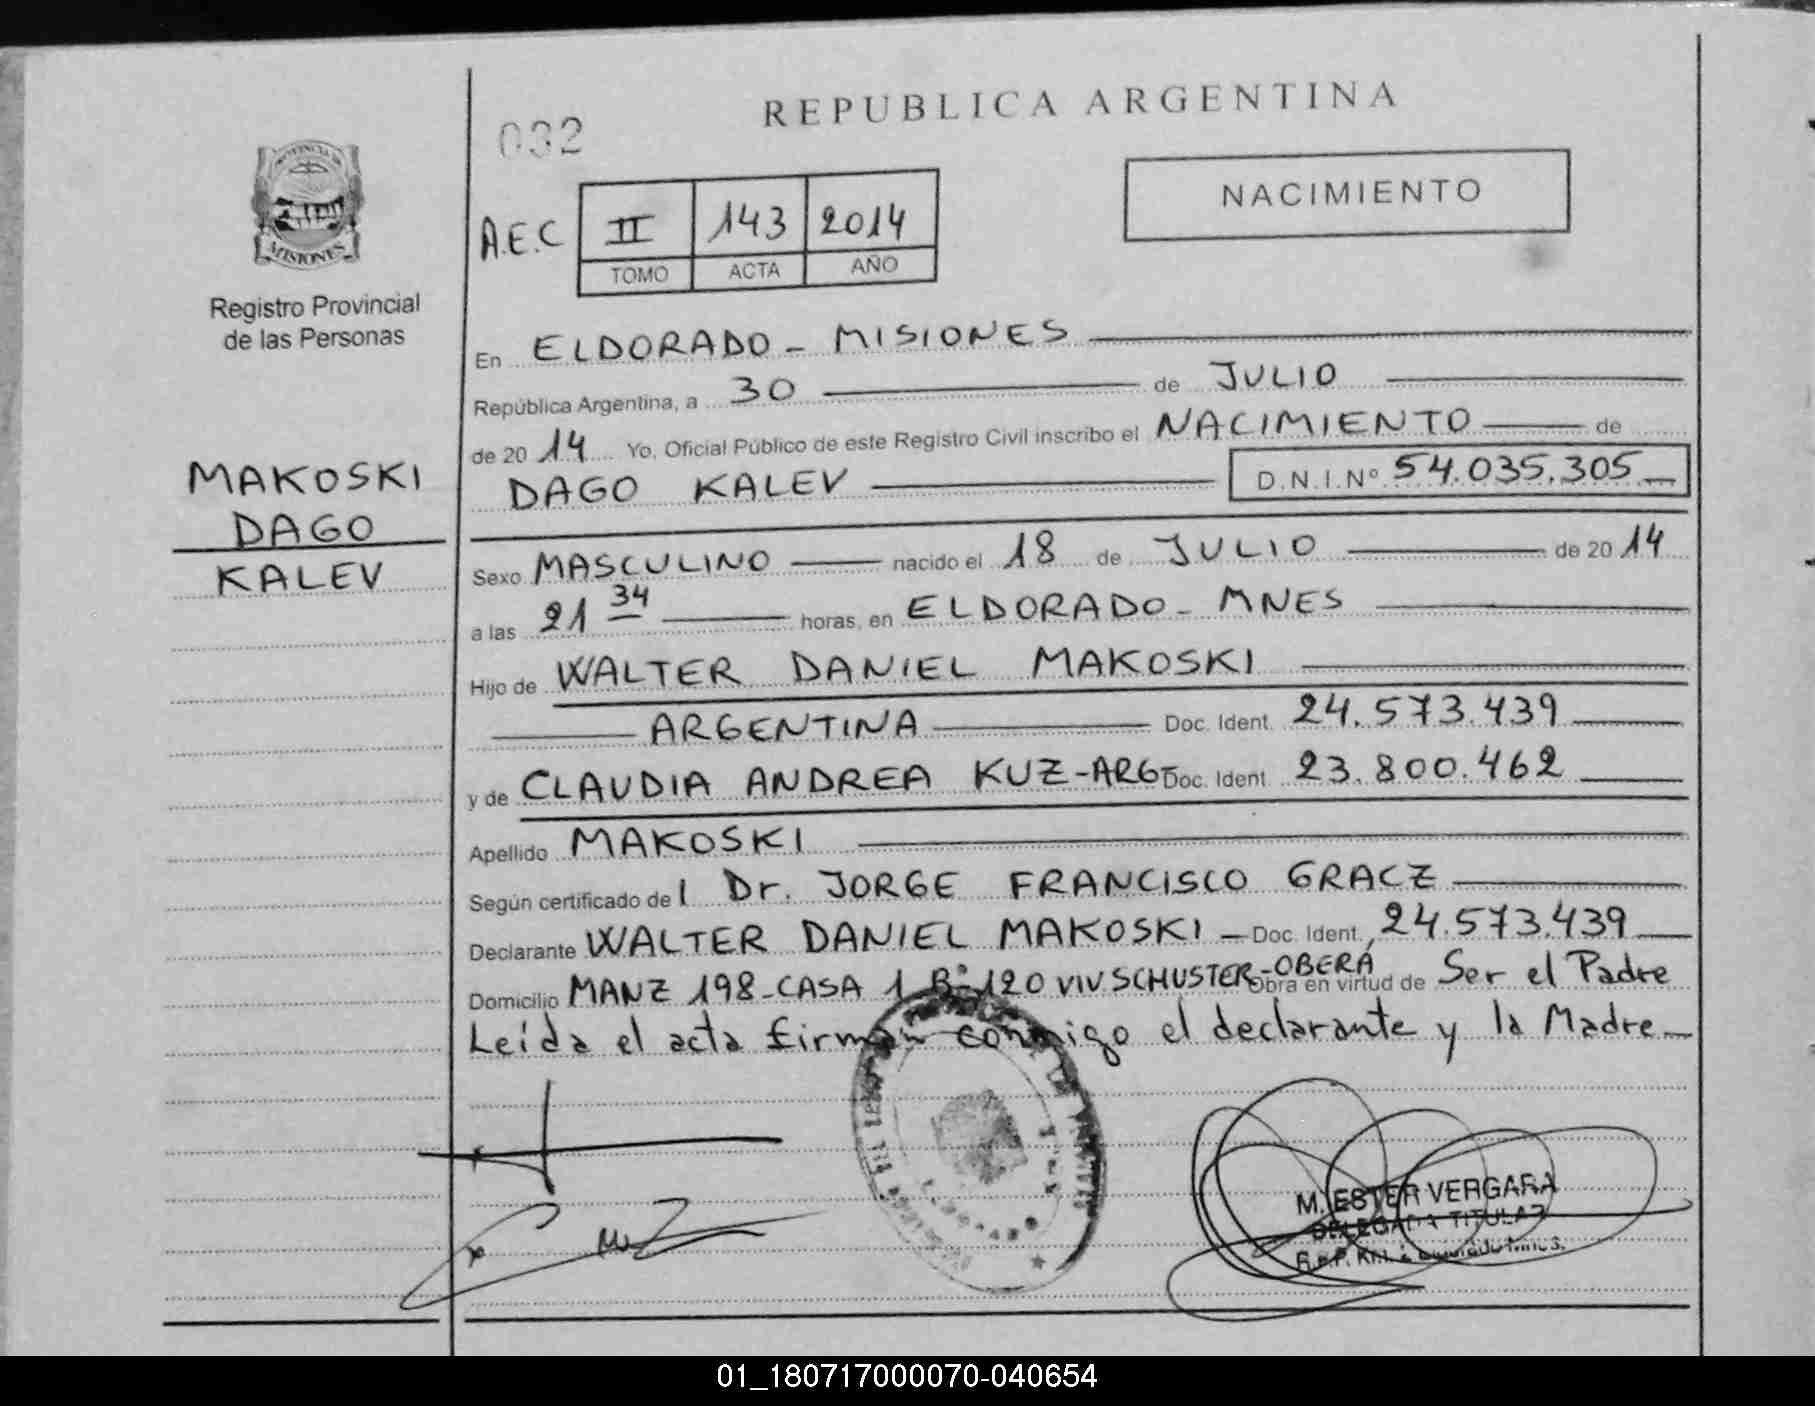 032
REPUBLICA ARGENTINA
PROVINCIA DE
MISIONES
Registro Provincial
de las Personas
A.E.C
II 143 2014
TOMO ACTA AÑO
NACIMIENTO
MAKOSKI
DAGO
KALEV
En ELDORADO - MISIONES
República Argentina, a 30 de JULIO
de 20 14 Yo, Oficial Público de este Registro Civil inscribo el NACIMIENTO de
DAGO KALEV D.N.I.Nº 54.035.305
Sexo MASCULINO nacido el 18 de JULIO de 20 14
a las 21 34 horas, en ELDORADO - MNES
Hijo de WALTER DANIEL MAKOSKI
ARGENTINA Doc. Ident. 24.573.439
y de CLAUDIA ANDREA KUZ-ARG- Doc. Ident. 23.800.462
Apellido MAKOSKI
Según certificado del Dr. JORGE FRANCISCO GRACZ
Declarante WALTER DANIEL MAKOSKI - Doc. Ident. 24.573.439
Domicilio MANZ 198-CASA 1 Bº 120 VIV SCHUSTER-OBERÁ Obra en virtud de Ser el Padre
Leída el acta firman conmigo el declarante y la Madre
M. ESTER VERGARA
DELEGADA TITULAR
01_180717000070-040654